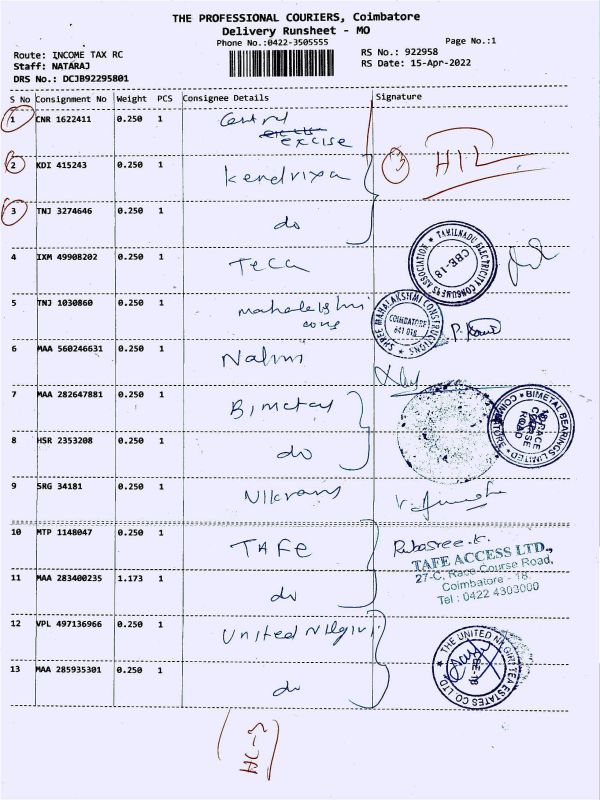 THE PROFESSIONAL COURIERS, Coimbatore
Delivery Runsheet - MO
Phone No.:0422-3505555
Page No.:1
Route: INCOME TAX RC
Staff: NATARAJ
DRS No.: DCJB92295801
RS No.: 922958
RS Date: 15-Apr-2022
S No Consignment No Weight PCS Consignee Details Signature
1 CNR 1622411 0.250 1 Central
excise
2 KDI 415243 0.250 1 Kendriya
3 HIL
3 TNJ 3274646 0.250 1 do
4 IXM 49908202 0.250 1 Teca
TAMILNADU ELECTRICITY CONSUMERS ASSOCIATION
CBE-18
5 TNJ 1030860 0.250 1
cons
SHREE MAHALAKSHMI CONSTRUCTIONS
COIMBATORE
641 018
6 MAA 560246631 0.250 1
7 MAA 282647881 0.250 1 Bimetal
BIMETAL BEARINGS LIMITED
COIMBATORE
RACE COURSE ROAD
8 HSR 2353208 0.250 1 do
9 SRG 34181 0.250 1
10 MTP 1148047 0.250 1 TAFE
Rubasree.K.
TAFE ACCESS LTD.,
27-C, Race Course Road,
Coimbatore - 18.
Tel : 0422 4303000
11 MAA 283400235 1.173 1 do
12 VPL 497136966 0.250 1 United Nilgiri
THE UNITED NILGIRI TEA ESTATES CO LTD
CBE-18
13 MAA 285935301 0.250 1 do
HC-3